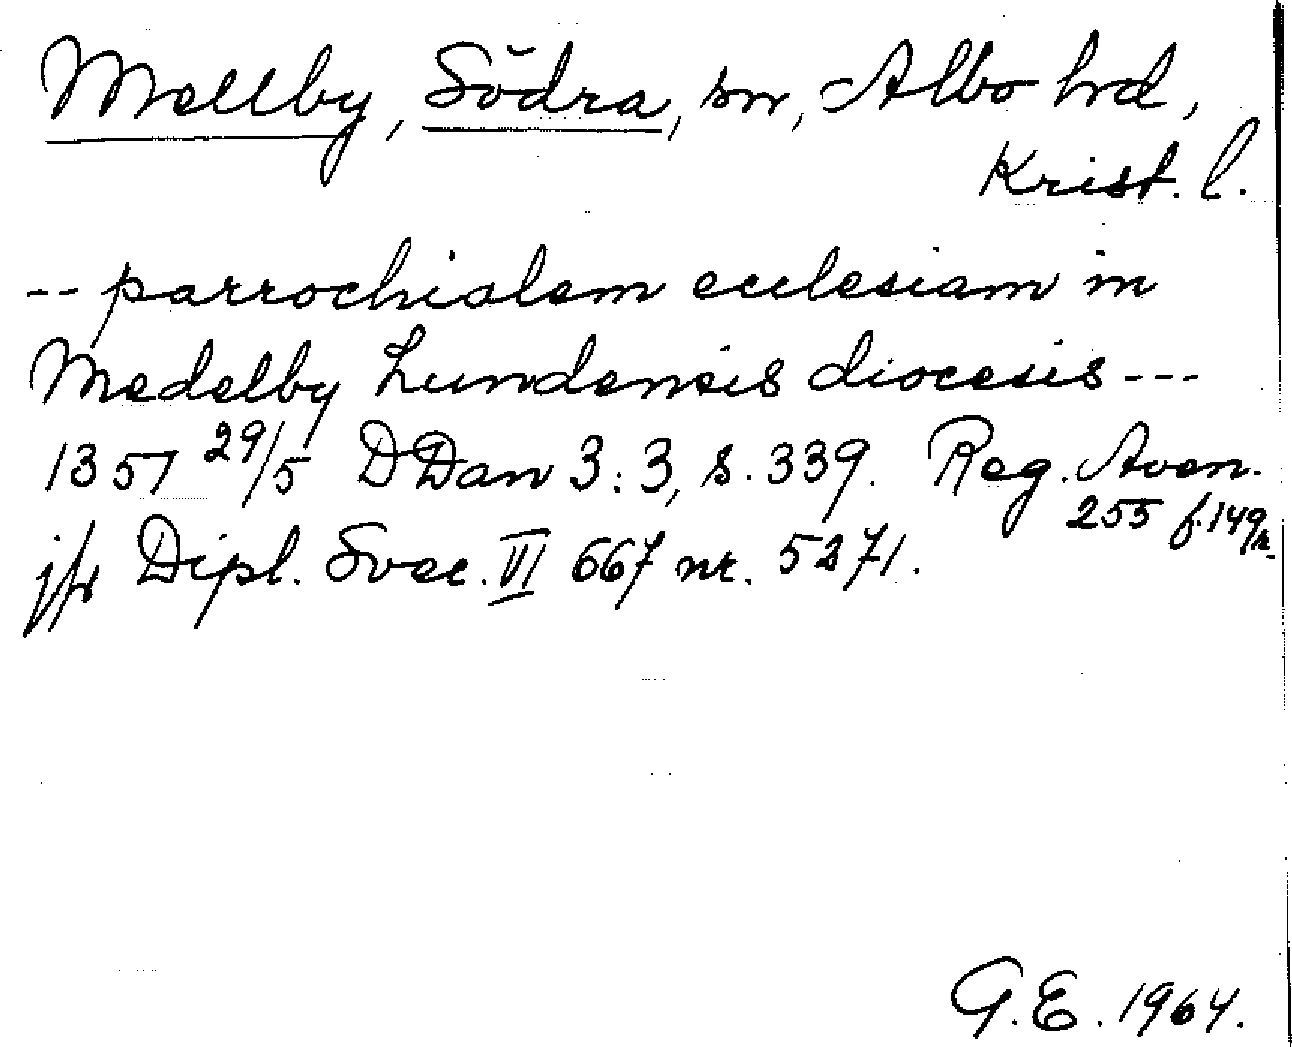 Mellby, Södra, sn, Albo hrd,
Krist. l.
-- parrochialem ecclesiam in
Medelby Lundensis diocesis ---
1357 29/5 DDan 3:3, s. 339. Reg. Aven.
255 f. 149r
jfr Dipl. Svec. VI 667 nr. 5271.
G.E. 1964.